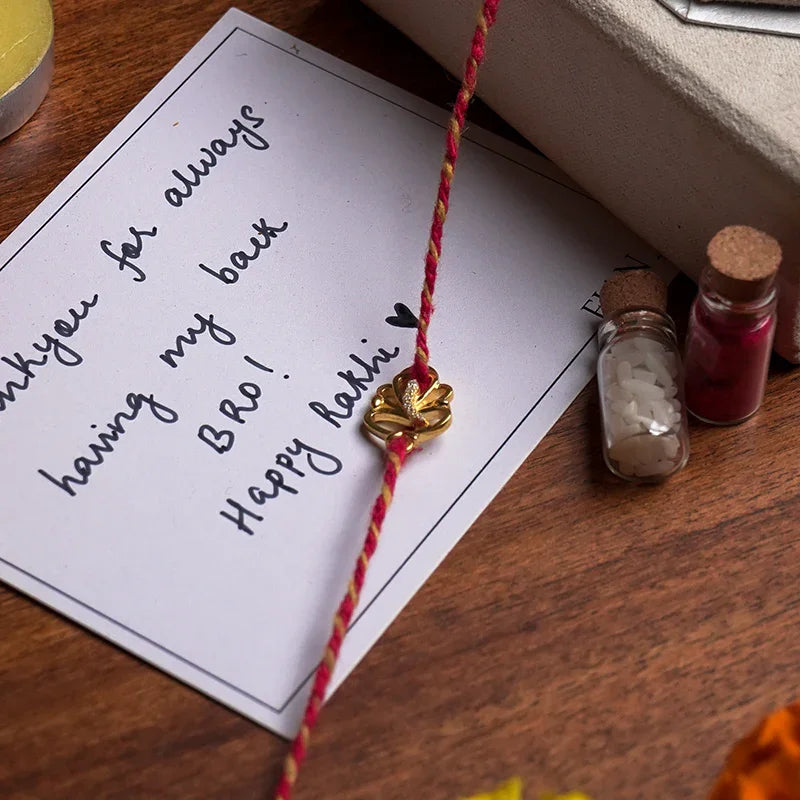 nkyou for always
having my back
BRO!
Happy Rakhi